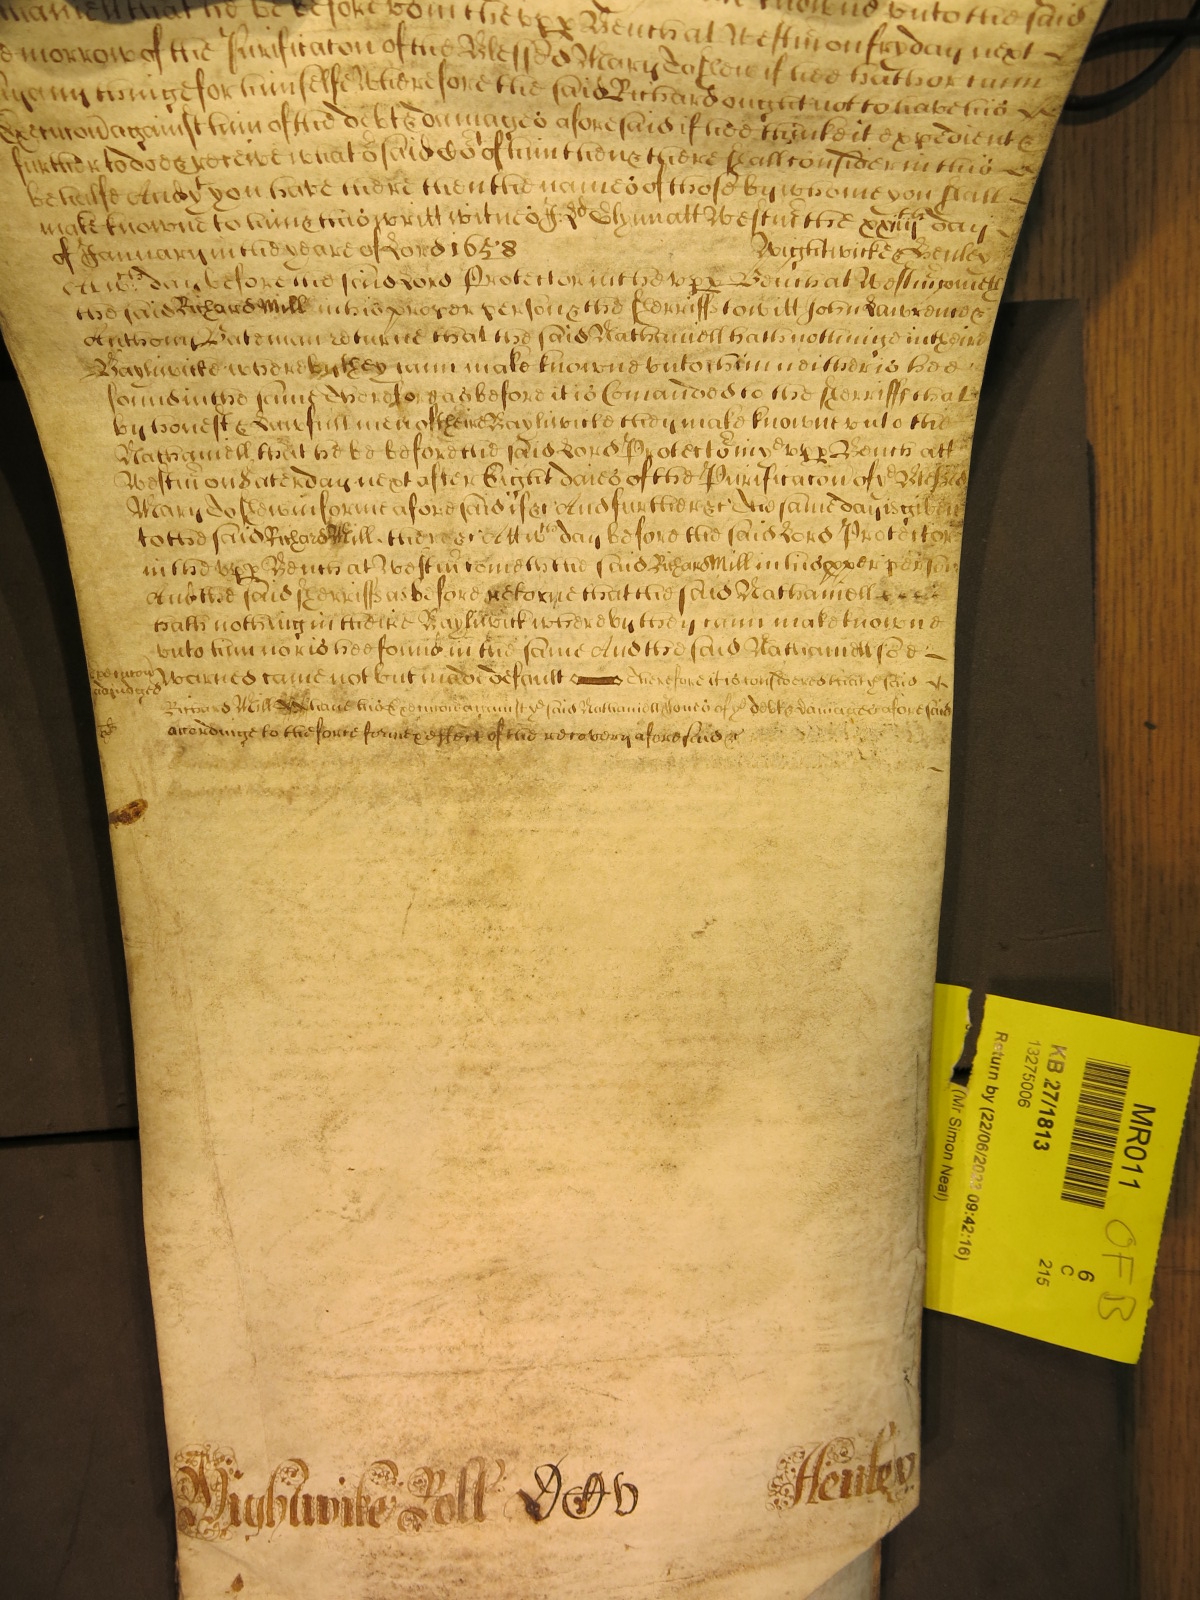 Nathaniell that he be before vs in the vpper knowne vnto the said
morrow of the Purificacon of the Blessed Mary Bench at Westm on fryday next
any thinge for himselfe Wherefore the said Richard ought not to have his
Execucion against him of the debt & damages aforesaid if hee thinke it expedient &
further to doe & receive what or said Co't of him then & there shall consider in this
behalfe And yt you have there then the names of those by whome you shall
make knowne to him & this writt witnes J. Glynn att Westmr the xxiiijth day
of January in the yeare of or Lord 1658 Wightwicke & Henley
Att wch day before the said Lord Protector in the vpper Bench at Westm cometh
the said Richard Mill in his proper person & the sherriffs to witt John Lawrence &
Anthony Bateman returne that the said Nathaniell hath nothinge in their
Bayliwicke whereby they cann make knowne vnto him neither is hee
found in the same Therefore as before it is Comanded to the sherriffs that
by honest & Lawfull men of their Bayliwicke they make knowne vnto the
Nathaniell that he be before the said Lord Protector in ye vpper Bench att
Westm on Saterday next after Eight daies of the Purificacon of ye Blessed
Mary To shew in forme aforesaid if &c And further &c The same day is given
to the said Richard Mill there &c Att wch day before the said Lord Protector
in the vpper Bench at Westm cometh the said Richard Mill in his proper person
And the said sherriffs as before retorne that the said Nathaniell
hath nothing in theire Bayliwick whereby they cann make knowne
vnto him nor is hee found in the same And the said Nathaniell soe
warned came not but made default Therefore it is considered that ye said
Richard Mill have his Execucion against ye said Nathaniell Jones of ye debt & damages aforesaid
accordinge to the force forme & effect of the recovery aforesaid &c
Execucion
adiudged
Wightwike Roll
Henley
MR011
OFB
KB 27/1813
13275006
6
C
215
Return by (22/06/202 09:42:16)
(Mr Simon Neal)